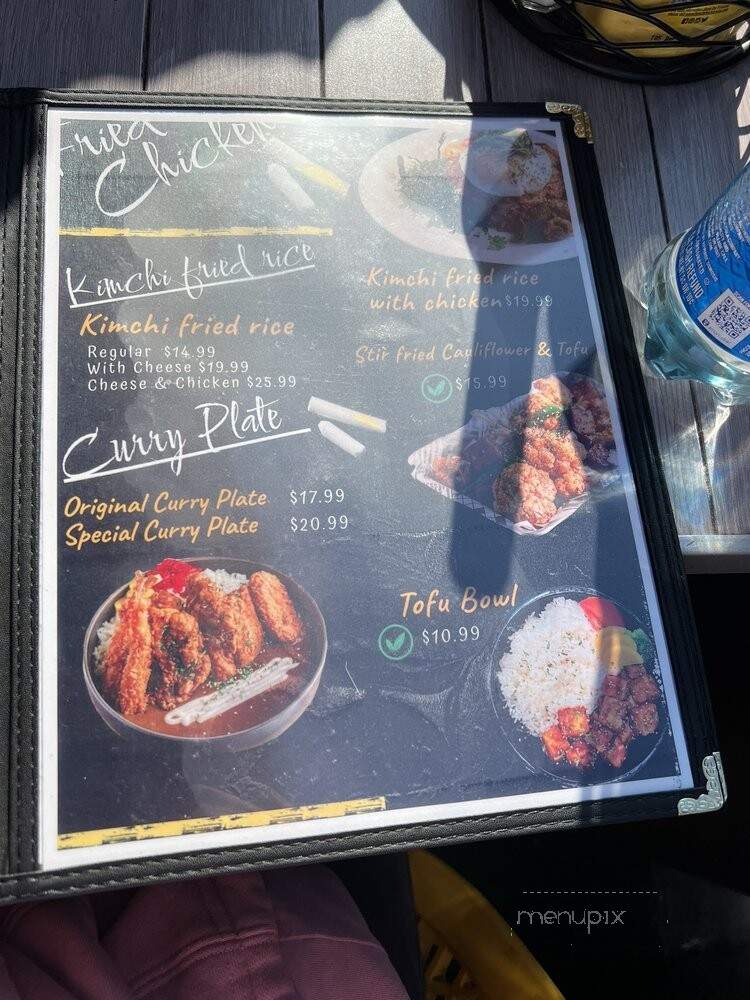 Fried
Chicken
Kimchi fried rice
Kimchi fried rice
Regular $14.99
With Cheese $19.99
Cheese & Chicken $25.99
Curry Plate
Original Curry Plate $17.99
Special Curry Plate $20.99
Kimchi fried rice
with chicken $19.99
Stir fried Cauliflower & Tofu
$15.99
Tofu Bowl
$10.99
REFUND
menupix